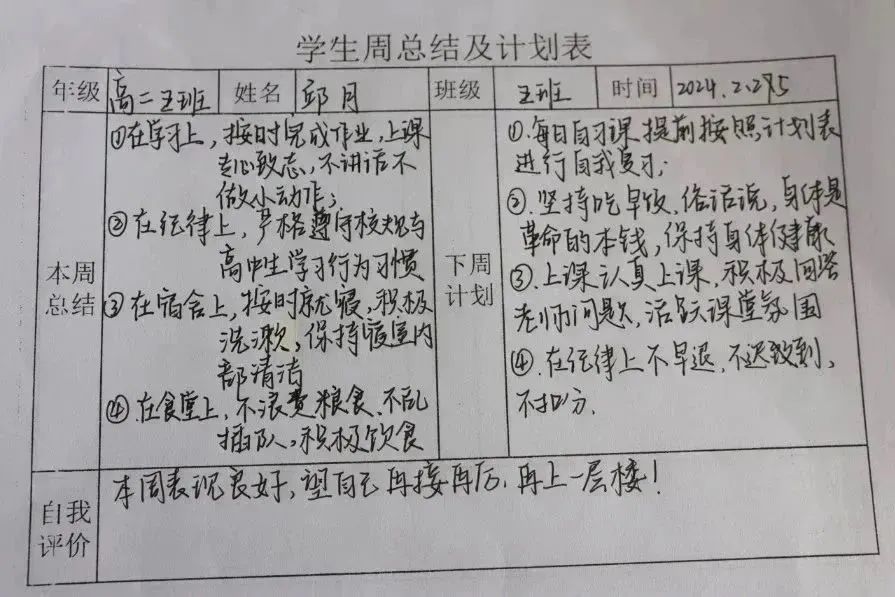 学生周总结及计划表
年级 高二 王班 姓名 邱月 班级 王班 时间 2024.2.27.5
本周总结
①在学习上，按时完成作业，上课
专心致志，不讲话不
做小动作；
②在纪律上，严格遵守校规与
高中生学习行为习惯
③在宿舍上，按时就寝，积极
洗漱，保持寝室内
部清洁
④.在食堂上，不浪费粮食.不乱
插队，积极饮食
下周计划
①.每日自习课提前按照计划表
进行自我复习；
②.坚持吃早饭，俗话说，身体是
革命的本钱，保持身体健康
③.上课认真上课，积极回答
老师问题，活跃课堂氛围
④.在纪律上不早退，不迟到，
不扣分.
自我评价
本周表现良好，望自己再接再厉，再上一层楼！